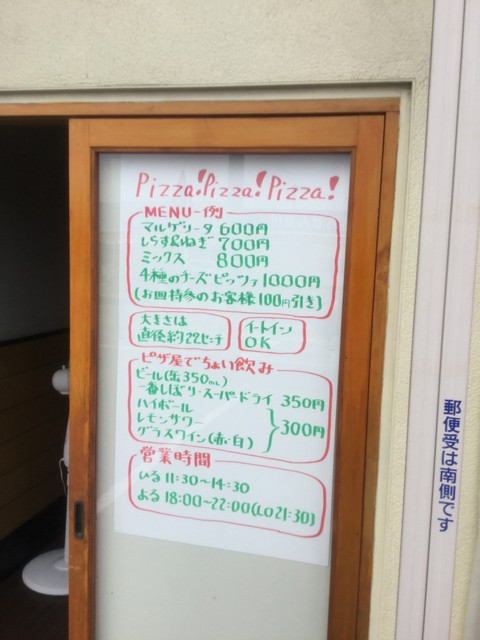 Pizza! Pizza! Pizza!
MENU一例
マルゲリータ 600円
しらす&ねぎ 700円
ミックス 800円
4種のチーズピッツァ 1000円
(お皿持参のお客様100円引き)
大きさは
直径約22センチ
イートイン
OK
ピザ屋でちょい飲み
ビール(缶350mL)
一番しぼり・スーパードライ 350円
ハイボール
レモンサワー
グラスワイン(赤・白)
300円
営業時間
ひる 11:30〜14:30
よる 18:00〜22:00(LO21:30)
郵便受は南側です